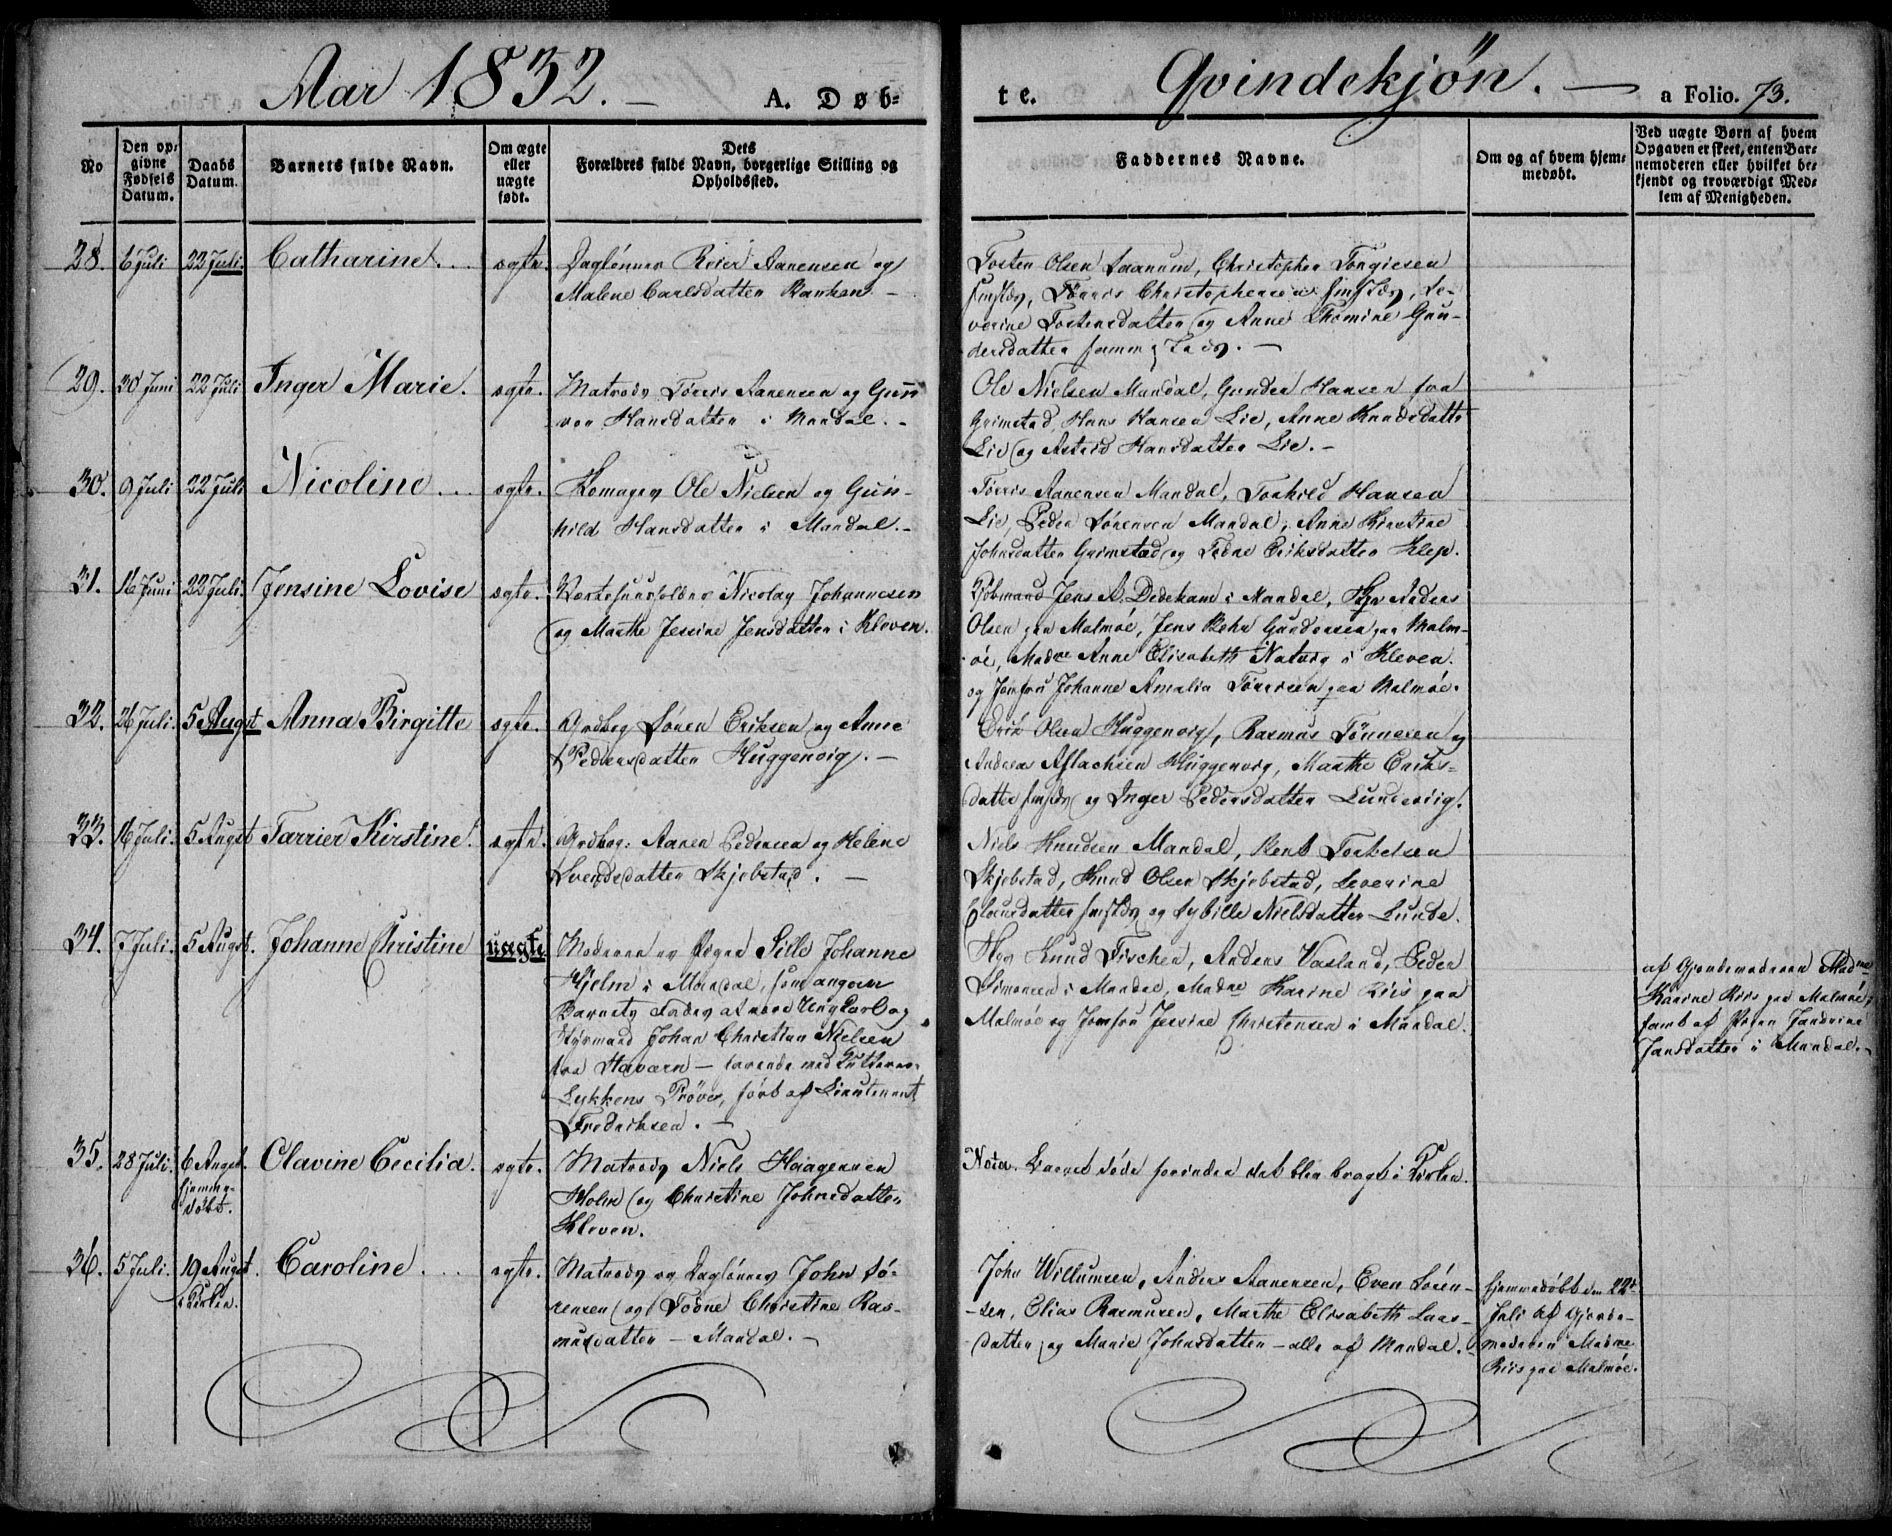 Aar 1832. — A. Døb-
te. Qvindekjøn. — a Folio. 73.
No
Den op-
givne
Fødsels
Datum.
Daabs
Datum.
Barnets fulde Navn.
Om ægte
eller
uægte
født.
Dets
Forældres fulde Navn, borgerlige Stilling og
Opholdssted.
Faddernes Navne.
Om og af hvem hjem-
medøbt.
Ved uægte Børn af hvem
Opgaven er skeet, enten Bar-
nemoderen eller hvilket be-
kjendt og troværdigt Med-
lem af Menigheden.
28. 6 Juli 22 Juli. Catharine. ægte.
Daglønner Reier Aanensen og
Malene Carlsdatter Banken. —
Tosten Olsen Saanum, Christopher Tongiesen
Tørris Christophersen
verine Tostensdatter og Anne Thomine Gun-
dersdatter
29. 30 Juni 22 Juli Inger Marie. ægte.
Matrods Tørris Aanensen og Gun
vor Hansdatter i Mandal. -
Ole Nielsen Mandal, Gunder Hansen fra
Grimstad, Hans Hansen Lie, Anne Knudsdatter
Lie og Astrid Hansdatter Lie. -
30. 9 Juli 22 Juli Nicoline. ægte.
Skomager Ole Nielsen og Gun-
hild Hansdatter i Mandal. -
Tørris Aanensen Mandal, Torkild Hansen
Lie, Peder Sørensen Mandal, Anne Kirstine
Johnsdatter Grimstad og Tedne Eriksdatter Klep.
31. 16 Juni 22 Juli. Jensine Lovise ægte.
Værtshuusholder Nicolay Johannesen
og Marthe Jessine Jensdatter i Kleven.
Kjøbmand Jens A. Dedekam i Mandal, Hr Anders
Olsen paa Malmøe, Jens Behn Gundersen paa Malm-
øe, Madme Anne Elisabeth Natvig i Kleven.
og Jomfru Johanne Amalia Tørresen paa Malmøe.
32. 26 Juli. 5 Augst Anna Birgitte ægte.
Grdbrg Søren Eriksen og Anne
Pedersdatter Huggenvig. —
Erik Olsen Huggenvig, Rasmus Tønnesen og
Andreas Aslachsen Huggenvig, Marthe Eriks-
datter og Inger Pedersdatter Lundeviig.
33. 16 Juli. 5 Augst Tarrier Kirstine. ægte.
Grdbrg: Aanen Pedersen og Helene
Svendsdatter Skjebstad. —
Niels Knudsen Mandal, Bent Torkelsen
Skjebstad, Knud Olsen Skjebstad, Severine
Clausdatter og Sybille Nielsdatter Lunde.
34. 7 Juli. 5 Augst. Johanne Christine uægte
Moderen er Pigen Sille Johanne
Hjelm i Mandal, som angav
Barnets Fader at være Ungkarl og
Styrmand Johan Christian Nielsen
fra Stavern — farende med Gutterne-
Lykkens Prøve, ført af Lieutenant
Fredriksen. —
Knud Fischer, Anders Vasland, Peder
Simonsen i Mandal, Madme Karine Riis paa
Malmøe og Jomfru Jessine Christensen i Mandal.
af Gjordemoderen Madme
Karine Riis paa Malmøe,
samt af Pigen Tandrine
Jansdatter i Mandal. -
35. 28 Juli. 6 Augst. Olavine Cecilia. ægte.
hjemme-
døbt.
Matrods Niels Haagensen
Holm og Christine Johnsdatter
Kleven.
Nota. Barnet døde forinden det blev bragt i Kirken.
36. 5 Juli. 19 Augst. Caroline. ægte.
i Kirken.
Matrods og Daglønner John Sø-
rensen og Todne Christine Ras-
musdatter — Mandal. -
John Willumsen, Anders Aanensen, Even Søren-
-sen, Elias Rasmusen, Marthe Elisabeth Laas-
datter og Marie Johnsdatter — alle af Mandal.
hjemmedøbt den 22de
Juli af Gjorde-
moderen Madme
Riis paa Malmøe.